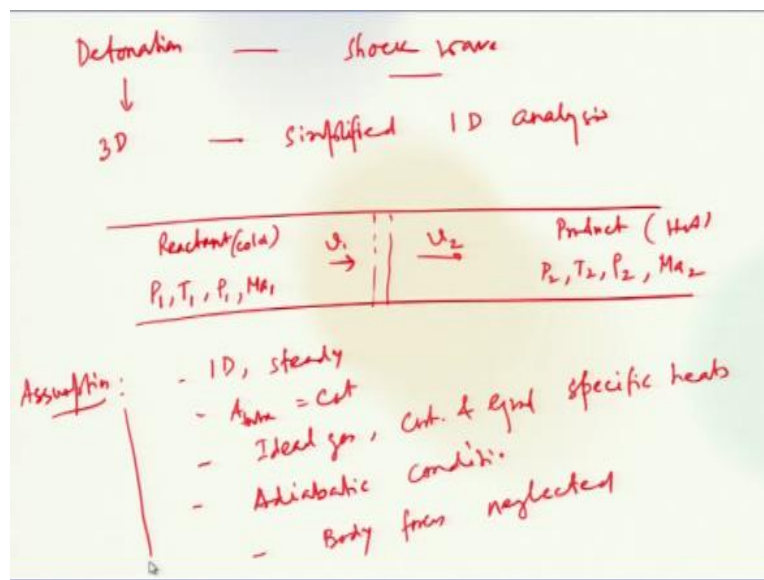 Detonation — Shock wave
↓
3D — Simplified 1D analysis
Reactant (cold) v₁ → v₂ → Product (Hot)
P₁, T₁, ρ₁, Ma₁ P₂, T₂, ρ₂, Ma₂
Assumption : - 1D, steady
- A = Cst
- Ideal gas, Cst. & equal specific heats
- Adiabatic conditi.
- Body forces neglected